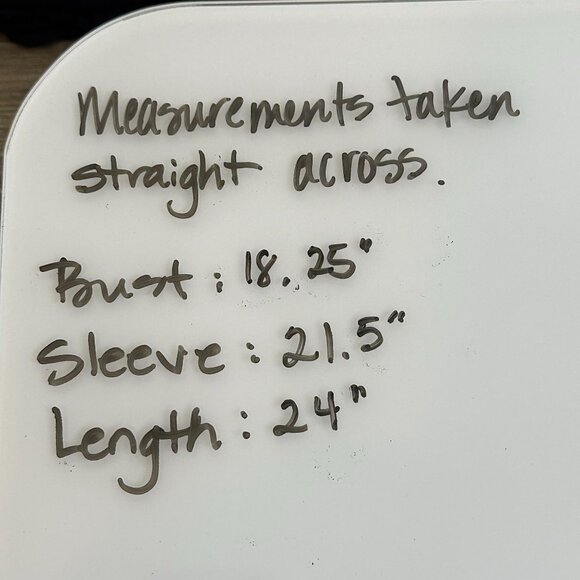 Measurements taken
straight across.
Bust: 18.25"
Sleeve: 21.5"
Length: 24"